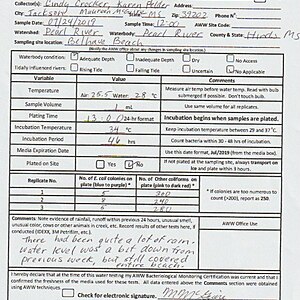 Collector(s): Cindy Crocker, Karen Pelder
Jackson State: MS Zip: 39202 Phone N°
Sample Date: 07/24/2019 Sample Time: 12:00 AWW Site Code:
Watershed: Pearl River Waterbody: Pearl River County: Hinds MS
Sampling site location: Belhave Beach
(Office: Notify AWW about any changes in sampling site location)
Waterbody condition: Adequate Depth Inadequate Depth Dry No Access
Tidally influenced rivers: Rising Tide Falling Tide Uncertain No Applicable
Variable Value Directions
Temperature Air 25.5 Water: 28 °C Measure air temp before water temp. Read with bulb submersed if possible. Don't touch bulb.
Sample Volume 1 mL Use same volume for all replicates.
Plating Time 13:01 24-hr format Incubation begins when samples are plated.
Incubation Temperature 34 °C Keep incubation temperature between 29 and 37 °C.
Incubation Period 46 hrs Count bacteria within 30 - 48 hrs of incubation.
Media Expiration Date Use date format, Jul/2019 (from the media box).
Plated on Site Yes No If not plated at the sampling site, always transport on ice and plate within 3 hours.
Replicate No. No. of E. coli colonies on plate (blue to purple) * No. of Other coliforms on plate (pink to dark red) *
1 5 360
2 8 240
3 5 280
* If colonies are too numerous to count (>200), report as 250.
Comments: Note evidence of rainfall, runoff within previous 24 hours, unusual smell, unusual color, cows or other animals in creek, etc. Record results of other tests here, if conducted (IDEXX, 3M Petrifilm, etc.)
AWW Office Use
There had been quite a lot of rain-
water level was a bit down from
previous week, but still covering
entire beach
I hereby declare that at the time of water testing my AWW Bacteriological Monitoring Certification was current and that I confirmed the freshness of the media used for sampling. All data entered above the Comments section were obtained using AWW techniques
Check for electronic signature.